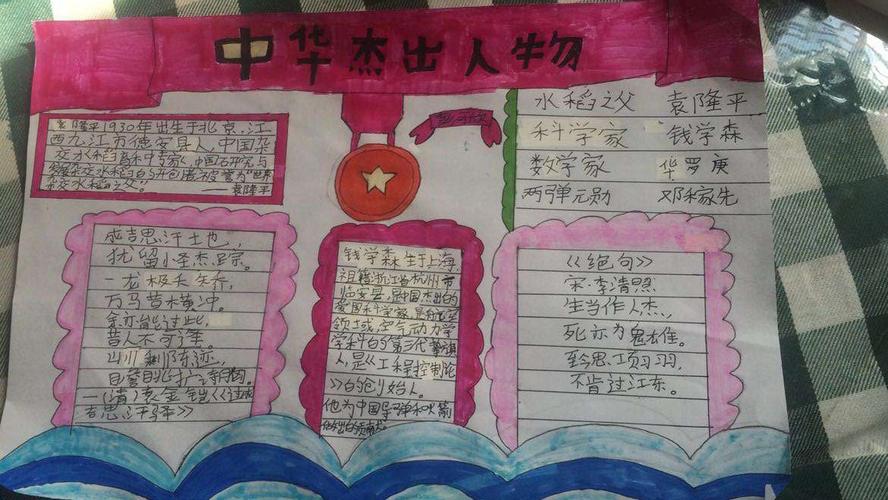 中华杰出人物
袁隆平1930年出生于北京,江
西九江市德安县人,中国杂
交水稻育种专家,中国研究与
杂交水稻的开创者,被誉为"世界
杂交水稻之父"。
——袁隆平
水稻之父 袁隆平
科学家 钱学森
数学家 华罗庚
两弹元勋 邓稼先
成吉思汗土也,
犹留小圣杰踪。
一龙
万马苗横冲。
昔人不可
山川剩陈迹,
目登眺
一(清)金铠《过成
吉思汗
钱学森生于上海
祖籍浙江省杭州市
临安县,是中国杰出的
爱国科学家,是航空
领域,空气动力学
学科的第三代
人,是《工程控制论
》的创始人。
他为中国导弹和火箭
《绝句》
宋·李清照
生当作人杰,
死亦为鬼雄。
至今思项羽,
不肯过江东。